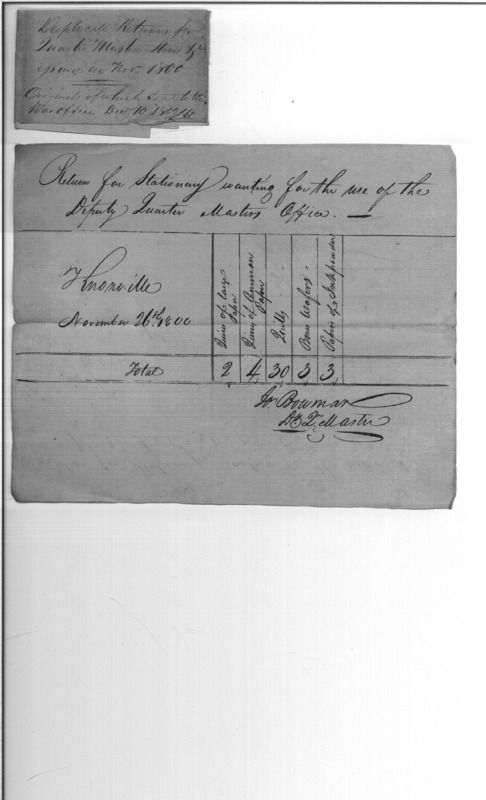 Duplicate Returns for
Quarter Master Stores &c
issued in Nov. 1800
Originals of which sent to the
War Office Dec. 10 1800
Return for Stationary wanting for the use of the
Deputy Quarter Masters Office. —
Knoxville
November 26th, 1800
Quire of large Paper
Quire of Common Paper
Quills
Boxes Wafers
Papers of Inkpowder
Total 2 4 30 3 3
Jo. Bowman
Dy. Qr. Master